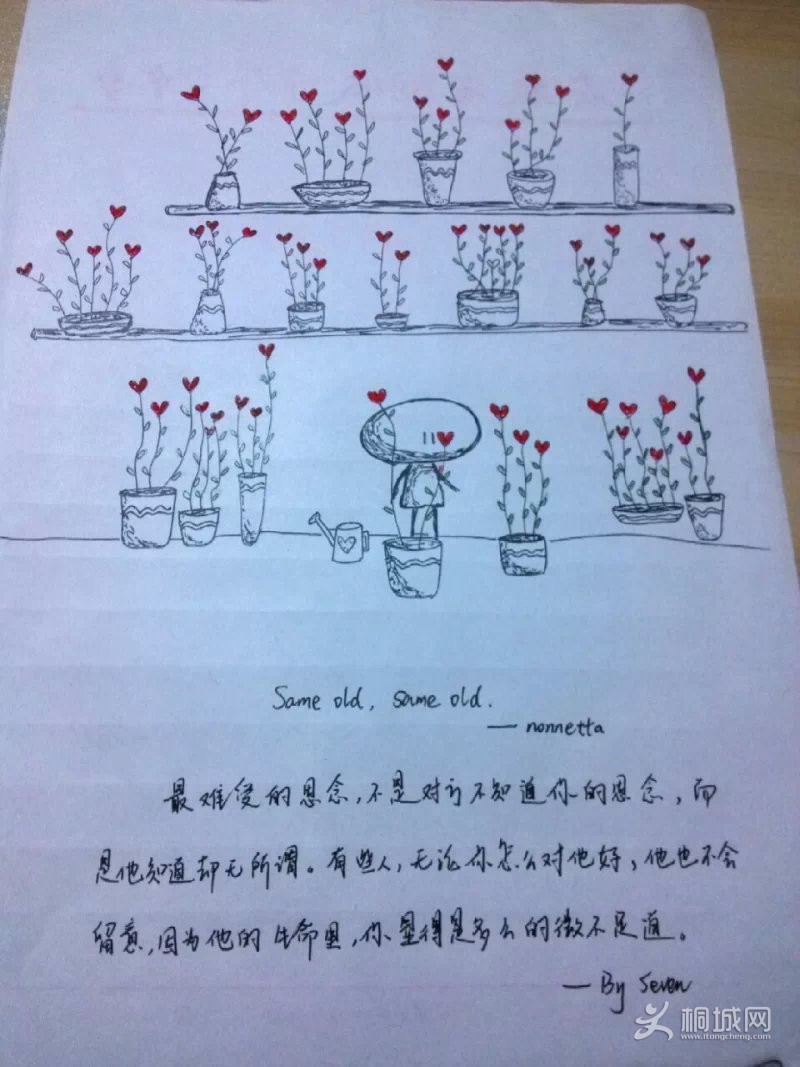 Same old, same old.
— nonnetta
最难受的思念,不是对方不知道你的思念,而
是他知道却无所谓。有些人,无论你怎么对他好,他也不会
留意,因为他的生命里,你显得是多么的微不足道。
— By Seven
桐城网
www.itongcheng.com